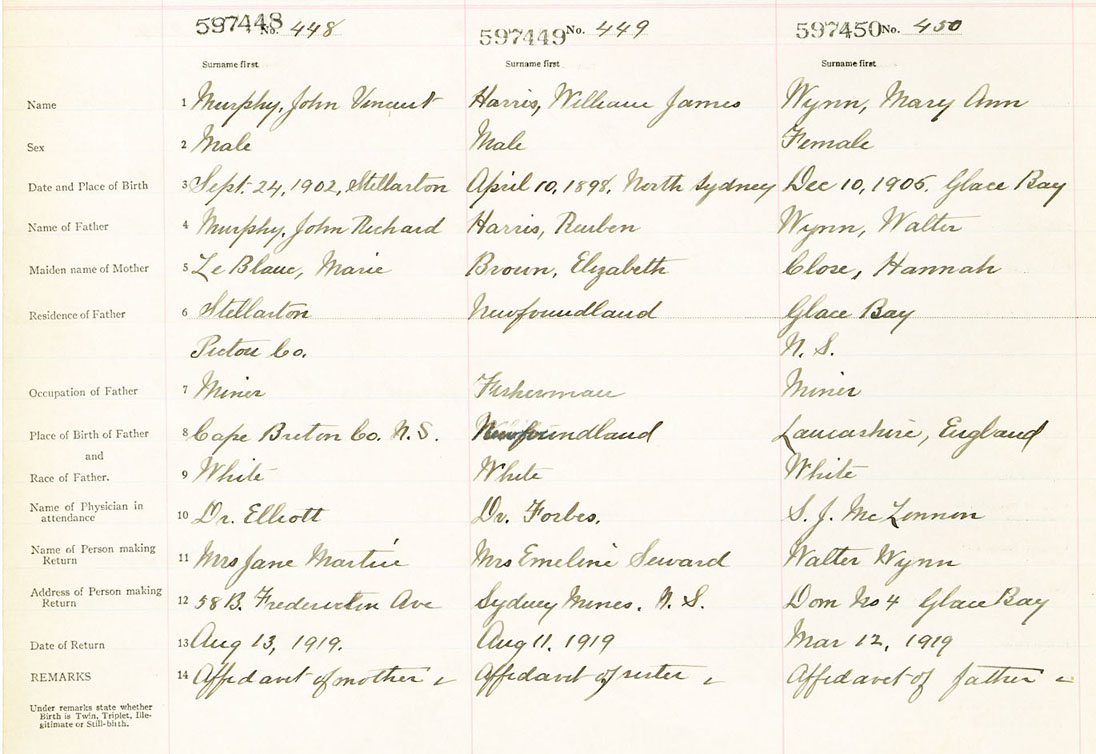 597448 No. 448 597449 No. 449 597450 No. 450
Surname first Surname first Surname first
Name 1 Murphy, John Vincent Harris, William James Wynn, Mary Ann
Sex 2 Male Male Female
Date and Place of Birth 3 Sept. 24, 1902, Stellarton April 10, 1898. North Sydney Dec 10, 1905. Glace Bay
Name of Father 4 Murphy, John Richard Harris, Reuben Wynn, Walter
Maiden name of Mother 5 Le Blanc, Marie Brown, Elizabeth Close, Hannah
Residence of Father 6 Stellarton Newfoundland Glace Bay
Pictou Co. N. S.
Occupation of Father 7 Miner Fisherman Miner
Place of Birth of Father 8 Cape Breton Co. N. S. Newfoundland Lancashire, England
and
Race of Father. 9 White White White
Name of Physician in
attendance 10 Dr. Elliott Dr. Forbes. S. J. McLennon
Name of Person making
Return 11 Mrs Jane Martin Mrs Emeline Seward Walter Wynn
Address of Person making
Return 12 58 B. Ave Sydney Mines. N. S. Dom No 4 Glace Bay
Date of Return 13 Aug 13, 1919. Aug 11, 1919 Mar 12, 1919
REMARKS 14 Affidavit of mother Affidavit of sister Affidavit of father
Under remarks state whether
Birth is Twin, Triplet, Ille-
gitimate or Still-birth.